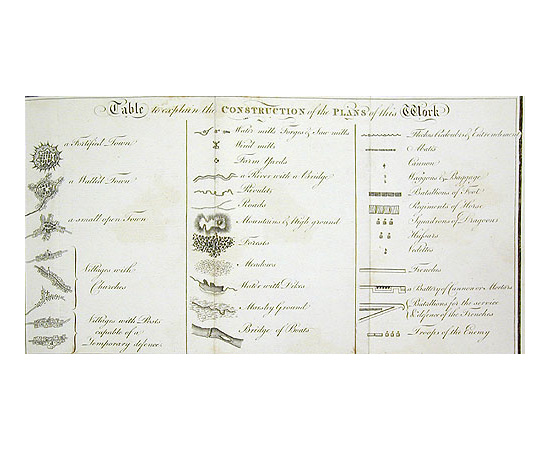 Table to explain the CONSTRUCTION of the PLANS of this Work
a Fortified Town
a Walled Town
a small open Town
Villages with
Churches
Villages with Posts
capable of a
temporary defence
Water mills Forges & Saw mills
Wind mills
Farm Yards
a River with a Bridge
Rivulets
Roads
Mountains & High ground
Forests
Meadows
Water with Dikes
Marshy Ground
Bridge of Boats
& Entrenchment
Abatis
Cannon
Waggons & Baggage
Batallions of Foot
Regiments of Horse
Squadrons of Dragoons
Hussars
Vedettes
Trenches
a Battery of Cannon or Mortars
Batallions for the service
& defence of the Trenches
Troops of the Enemy